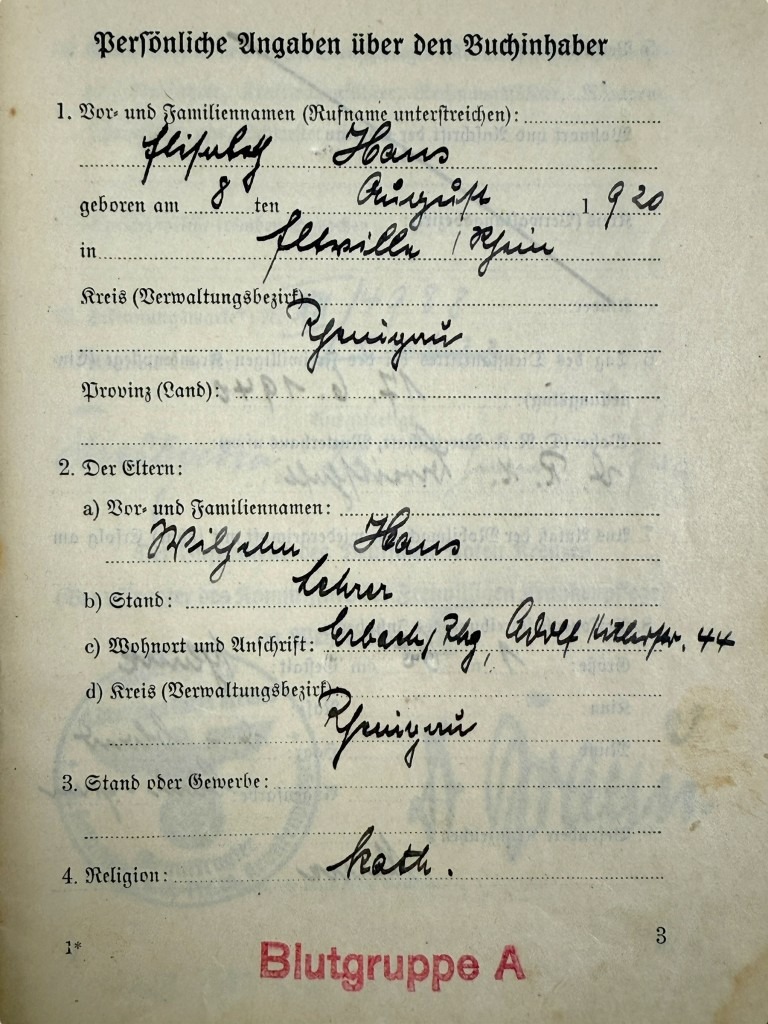 Persönliche Angaben über den Buchinhaber
1. Vor- und Familiennamen (Rufname unterstreichen):
Elisabeth Haus
geboren am 8 ten August 1 920
in Eltville / Rhein
Kreis (Verwaltungsbezirk):
Rheingau
Provinz (Land):
2. Der Eltern:
a) Vor- und Familiennamen:
Wilhelm Haus
b) Stand: Lehrer
c) Wohnort und Anschrift: Erbach / Rhg, Adolf Hitlerstr. 44
d) Kreis (Verwaltungsbezirk):
Rheingau
3. Stand oder Gewerbe:
4. Religion: kath.
1* 3
Blutgruppe A